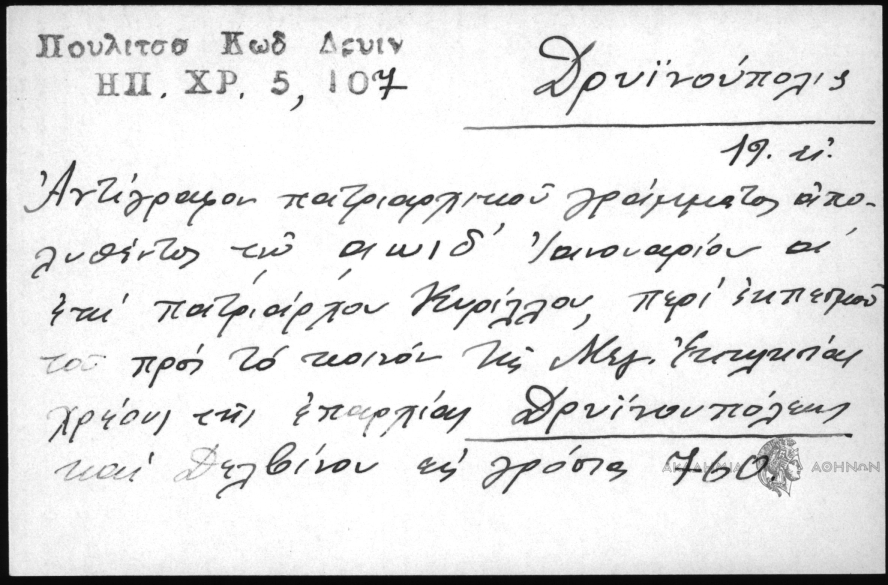 Πουλιτσα Κωδ Δρυιν
ΗΠ. ΧΡ. 5, 107
Δρυϊνούπολις
19. αἰ.
Ἀντίγραφον πατριαρχικοῦ γράμματος ἀπο-
λυθέντος τῷ αωιδ' Ἰανουαρίου α'
ἐπὶ πατριάρχου Κυρίλλου, περὶ ἐκπεσμοῦ
τοῦ πρὸς τὸ κοινὸν τῆς Μεγ. Ἐκκλησίας
χρέους τῆς ἐπαρχίας Δρυϊνουπόλεως
καὶ Δελβίνου εἰς γρόσια 760.
ΑΚΑΔΗΜΙΑ ΑΘΗΝΩΝ